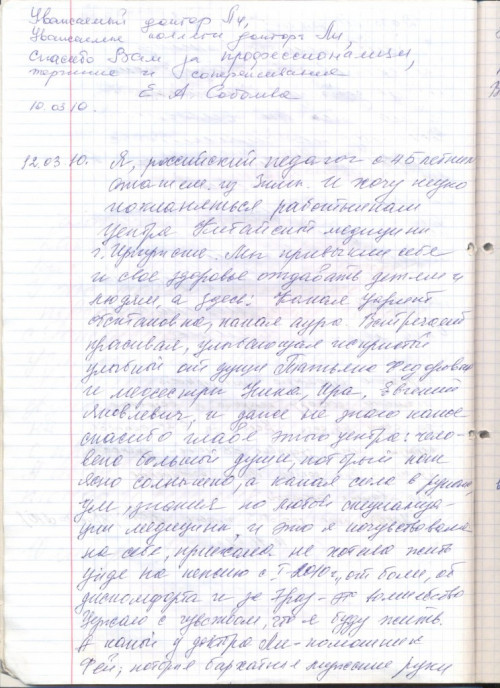 Уважаемый доктор Пи,
Уважаемые коллеги доктора Ли,
Спасибо Вам за профессионализм,
терпение и сопереживание
Е А. Соболева
10.03 10.
12.03 10. Я, российский педагог с 45 летним
стажем. из Зимы. И хочу низко
поклоняться работникам
Центра Китайской медицины
г. Иркутске. Мы привыкли себе
и свое здоровье отдавать детям и
людям, а здесь: Какая уютная
обстановка, какая аура. Встречает
красивая, улыбающая и
улыбкой от души Татьяна Федоровна
и медсестры Нина, Ира, Евгений
Яковлевич, и даже не знаю какое
спасибо главе этого центра: чело-
веко большой души, который как
ясно солнышко, а какая сила в руках,
ум, знания по любви специализа-
ции медицины, и это я почувствовала
на себе, приехала не хотела жить
уйдя на пенсию с I-2010г, от боли, от
дискомфорта и за 7раз-
Уезжаю с чувством, что я буду жить.
А какой у доктора Ли-помошник
Фей; которая бархатная мужские руки